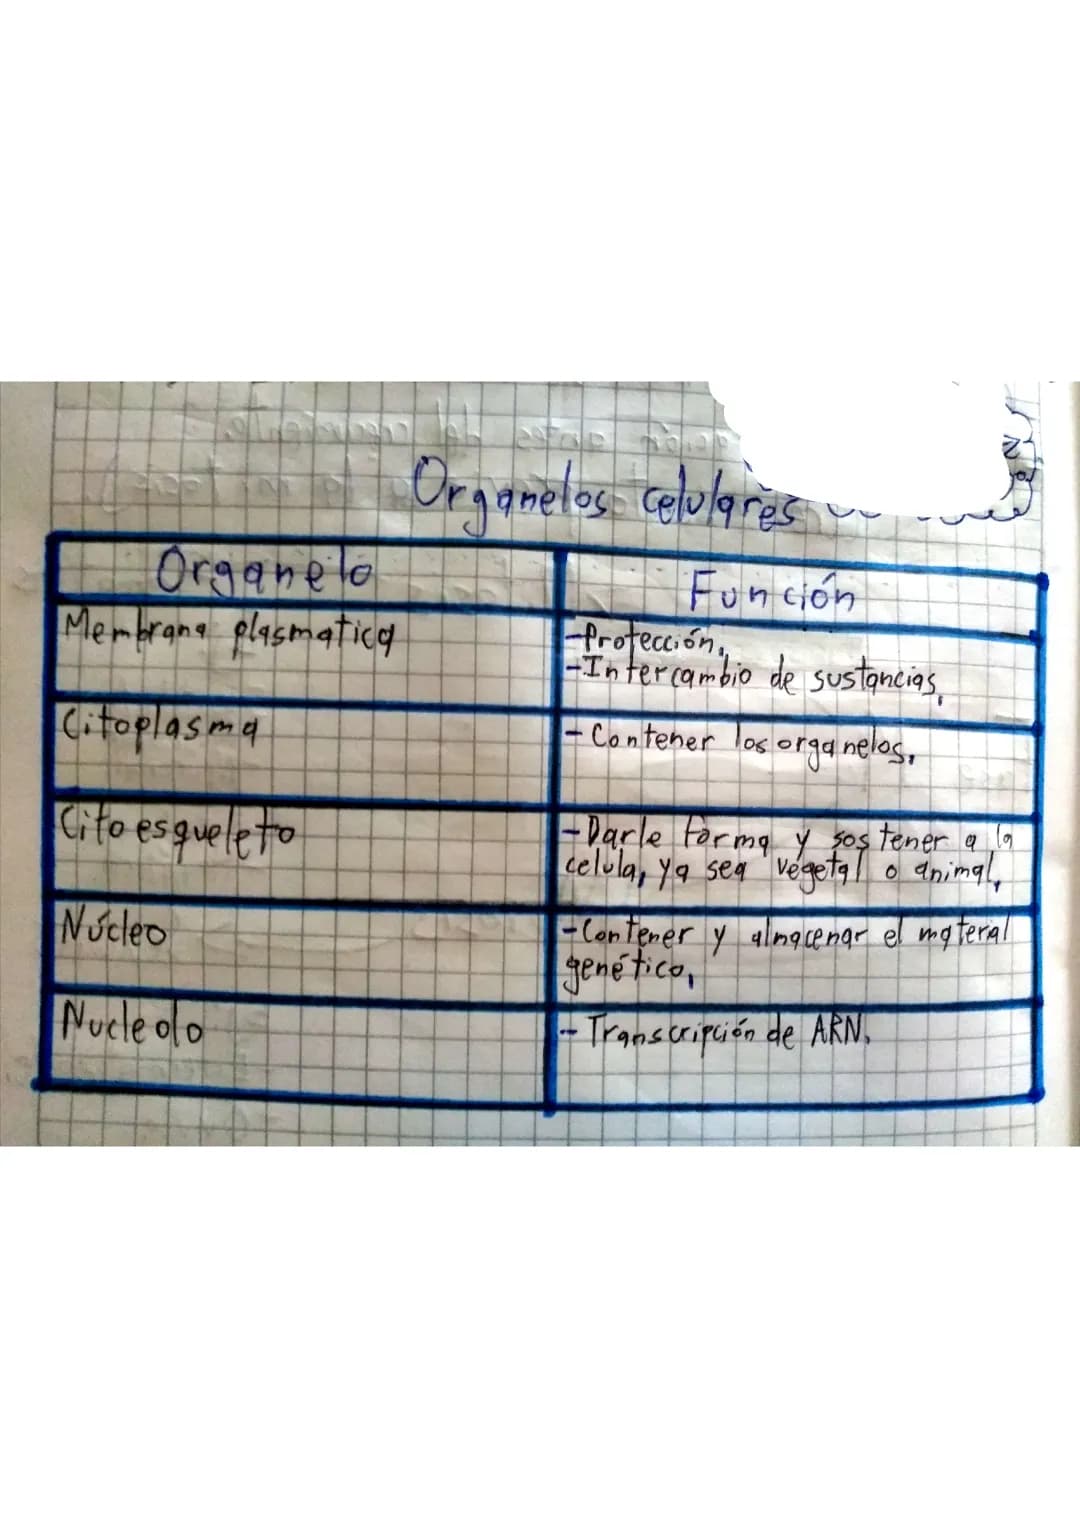 Organelos celulares
Organelo
Función
Membrana plasmatica
-Protección.
-Intercambio de sustancias.
Citoplasma
- Contener los organelos.
Citoesqueleto
-Darle forma y sostener a la
celula, ya sea vegetal o animal.
Núcleo
-Contener y almacenar el material
genético.
Nucleolo
- Transcripción de ARN.